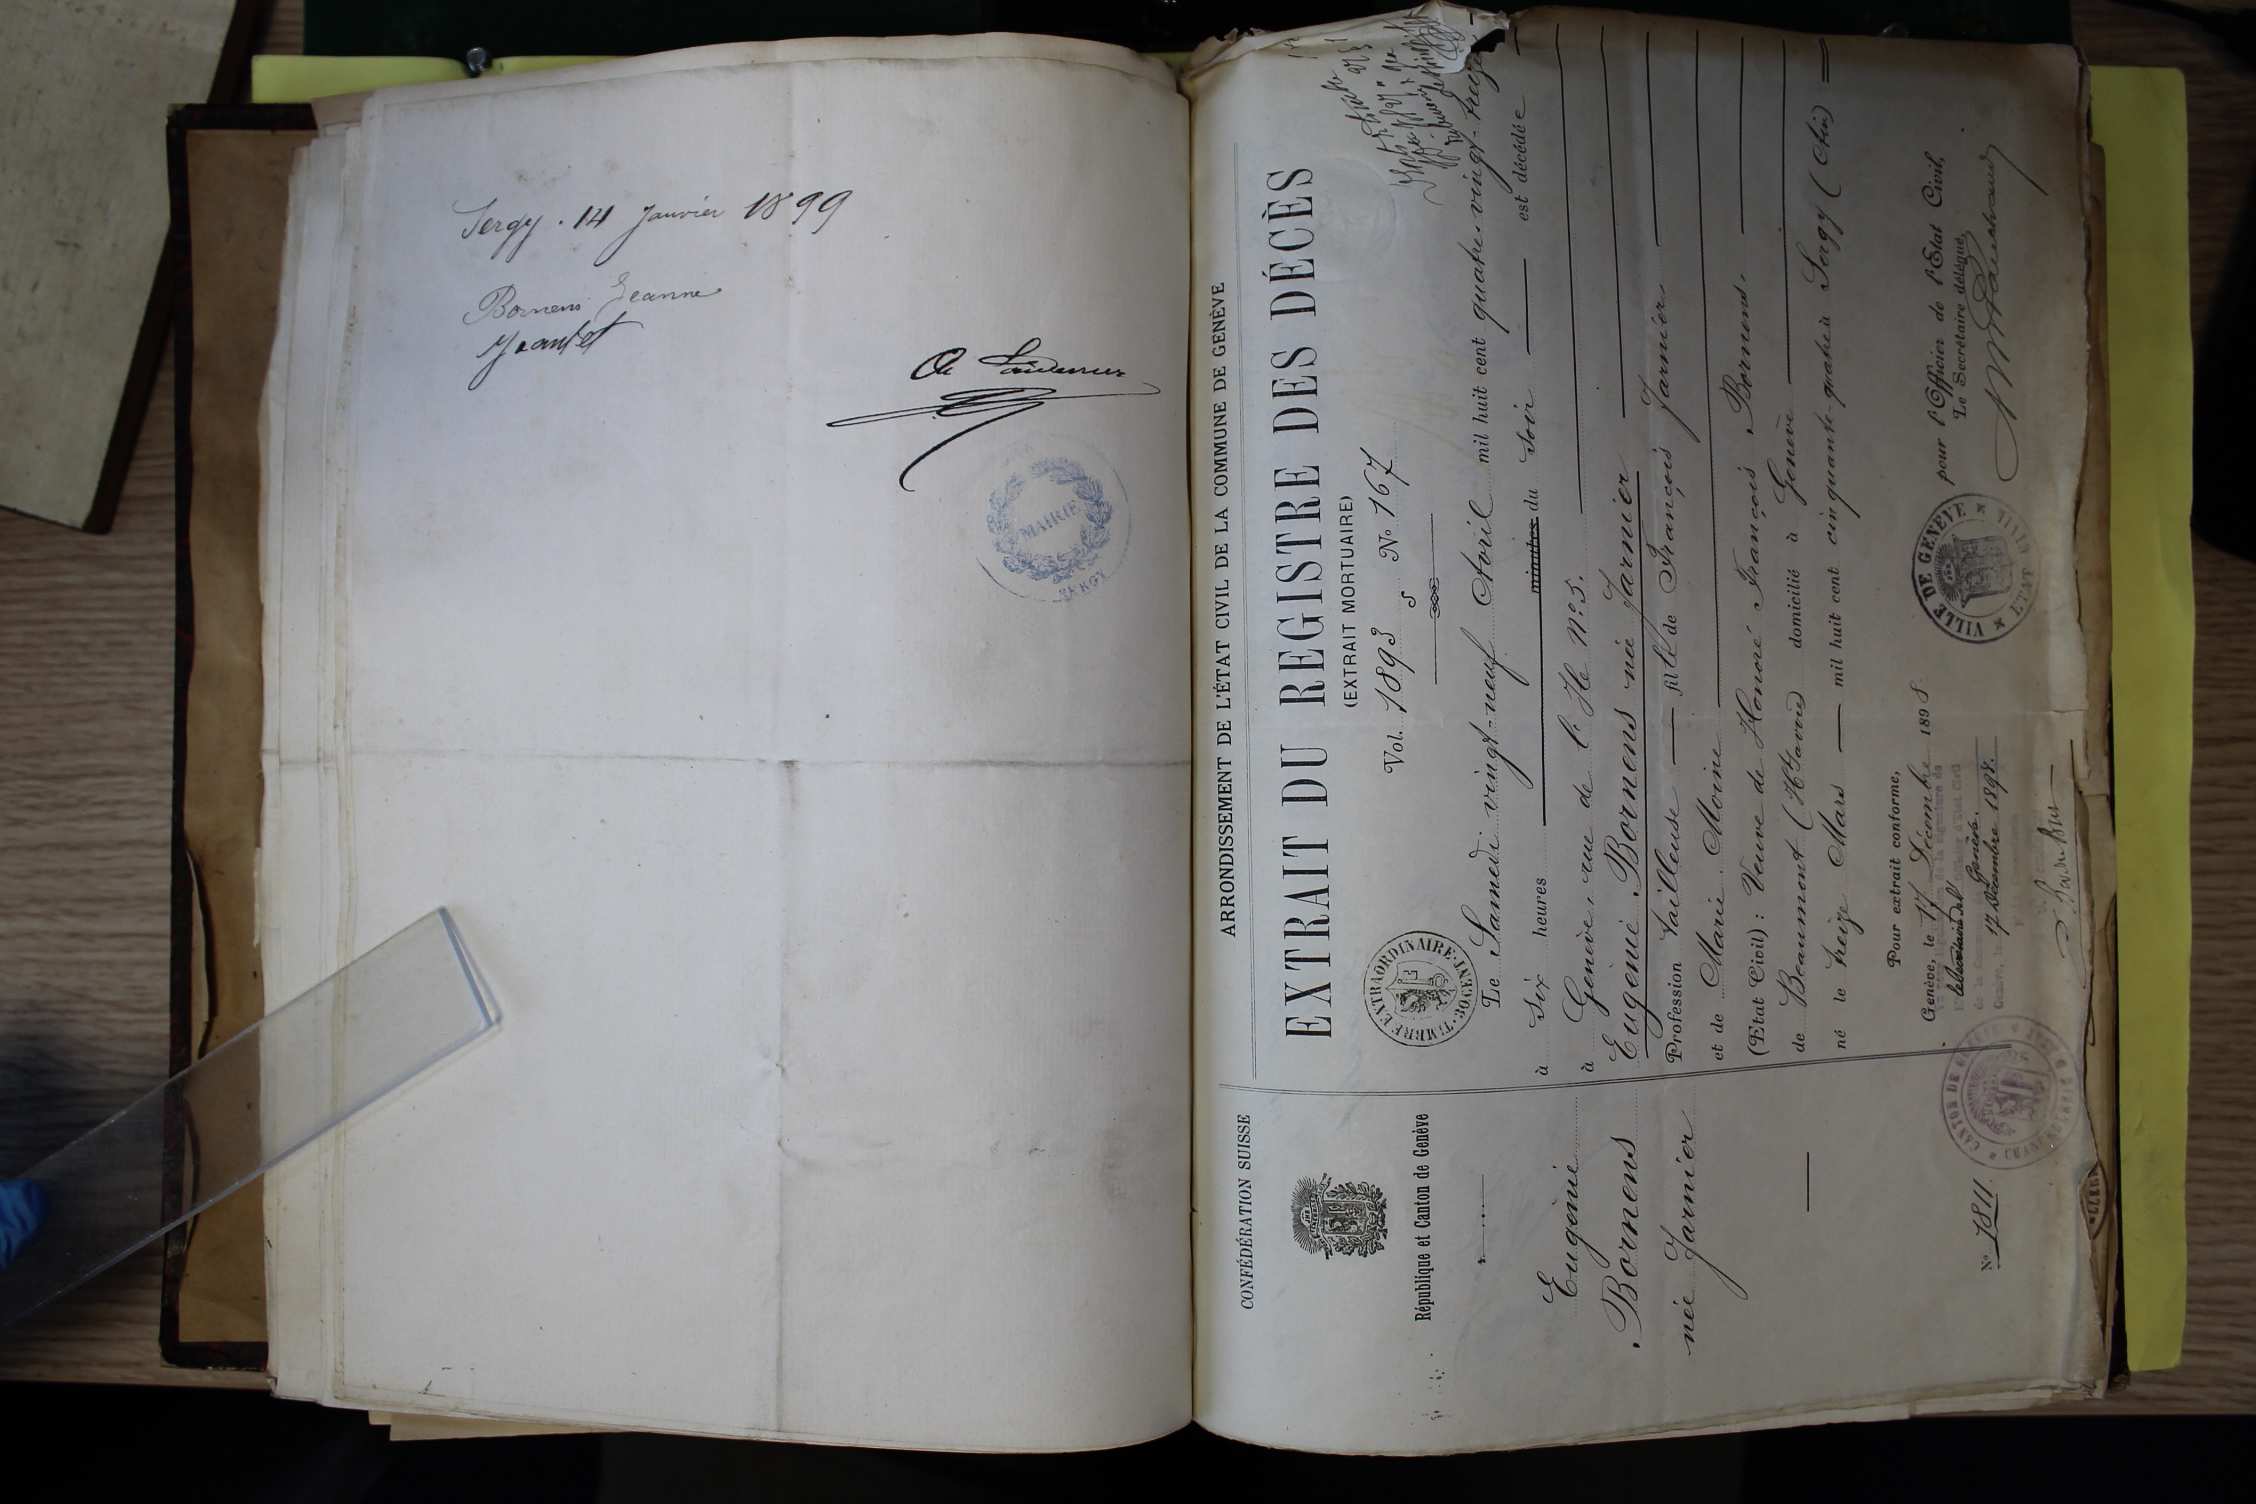 Sergy. 14 Janvier 1899
Bornens Jeanne
MAIRIE
SERGY
CONFÉDÉRATION SUISSE
République et Canton de Genève
Eugénie
Bornens
née Jarnier
N° 1811.
ARRONDISSEMENT DE L'ÉTAT CIVIL DE LA COMMUNE DE GENÈVE
EXTRAIT DU REGISTRE DES DÉCÈS
(EXTRAIT MORTUAIRE)
Vol. 1893 N° 167
TIMBRE EXTRAORDINAIRE
Le Samedi vingt-neuf Avril mil huit cent quatre-vingt-treize
à six heures minutes du soir est décédée
à Genève, rue de l'Ile N° 5.
Eugénie Bornens née Jarnier
Profession tailleuse fille de François Jarnier
et de Marie Moine
(Etat Civil): Veuve de Honoré François Bornens.
de Beaumont (Hte Savoie) domicilié à Genève
né le treize Mars mil huit cent cinquante-quatre à Sergy (Ain)
Pour extrait conforme,
Genève, le 17 Décembre 1898
pour l'Officier de l'Etat Civil,
Le Secrétaire délégué,
VILLE DE GENÈVE
ETAT CIVIL
Genève.
17 Décembre 1898.
CANTON DE